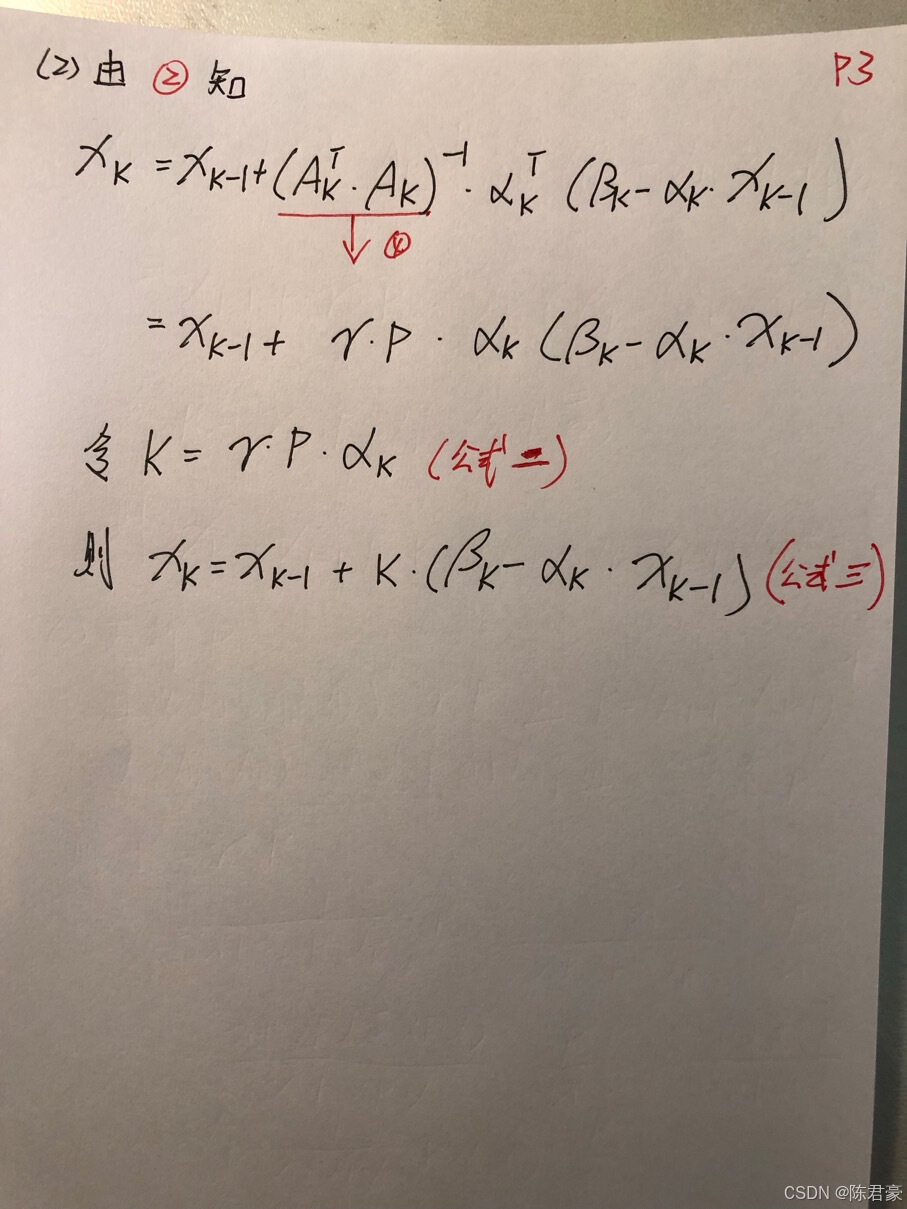 (2) 由 ② 知 P3
χ_K = χ_{K-1} + (A_K^T · A_K)^{-1} · α_K^T (β_K - α_K · χ_{K-1})
↓ ④
= χ_{K-1} + γ · P · α_K (β_K - α_K · χ_{K-1})
令 K = γ · P · α_K (公式二)
则 χ_K = χ_{K-1} + K · (β_K - α_K · χ_{K-1}) (公式三)
CSDN @陈君豪